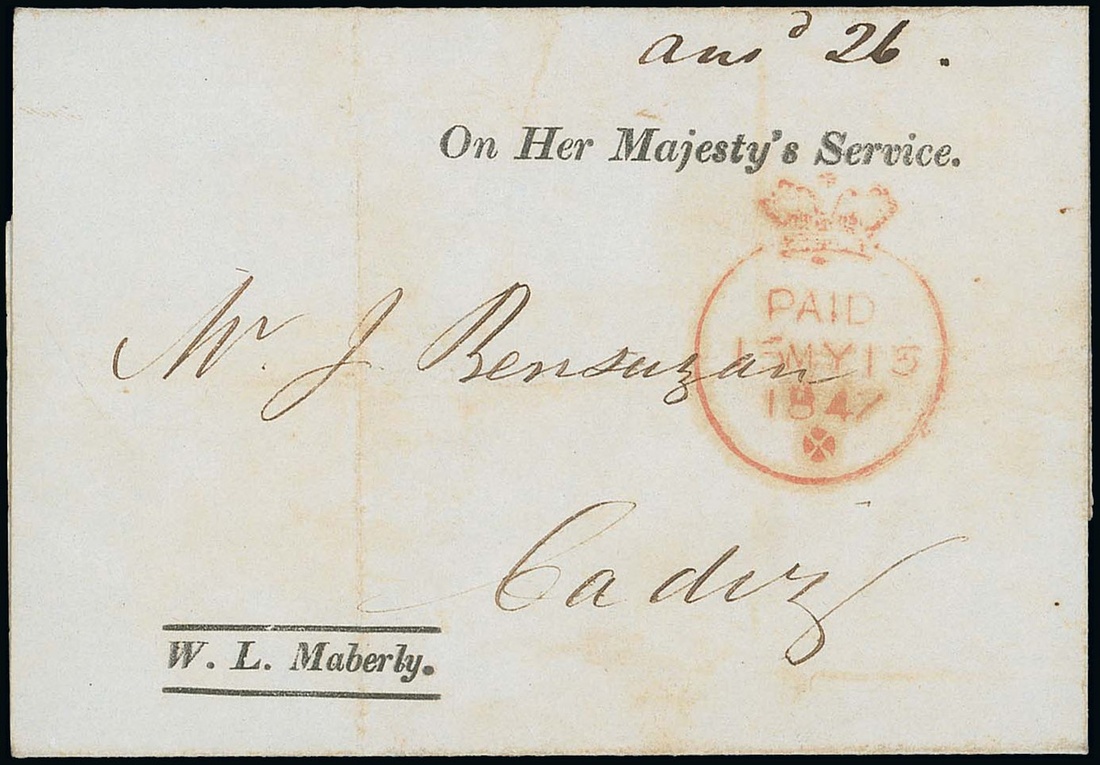 ansd 26.
On Her Majesty's Service.
PAID
15MY15
1847
Mr. J Bensuzan
Cadiz
W. L. Maberly.